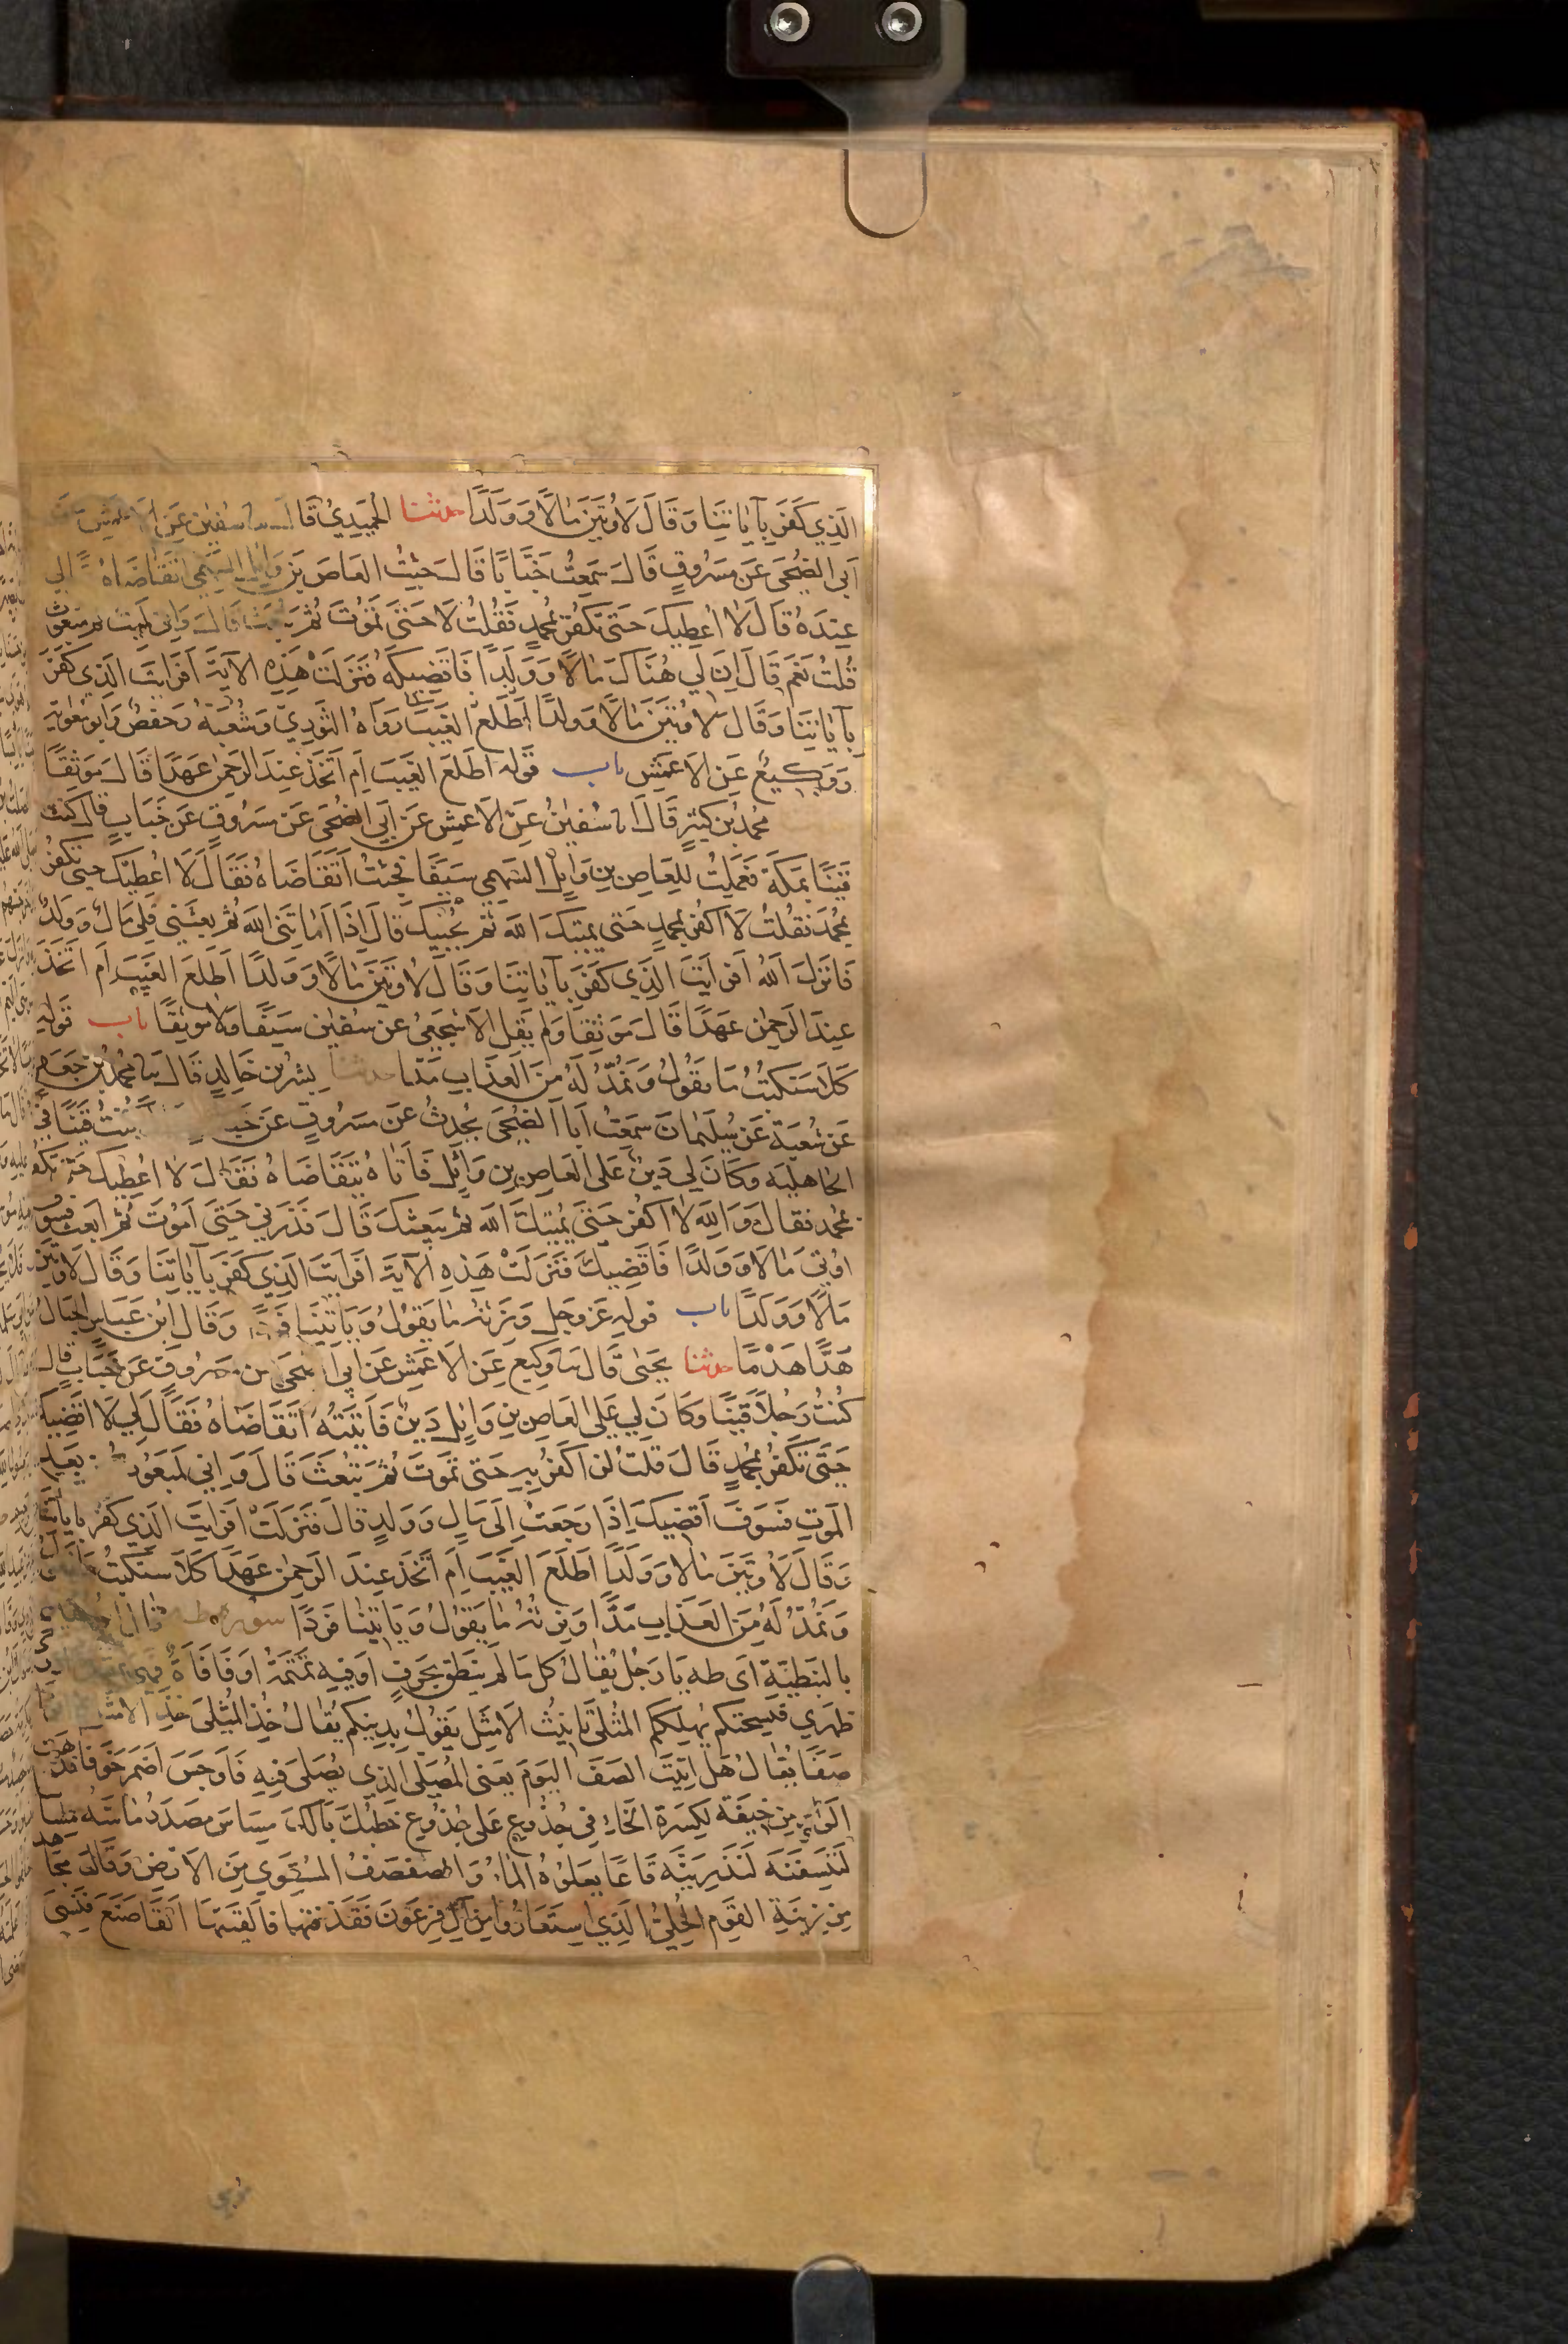 الَّذِي كَفَرَ بِآيَاتِنَا وَقَالَ لَأُوتَيَنَّ مَالًا وَوَلَدًا حدثنا الحُمَيْدِيُّ قَالَ سفين عَنِ الاعمش عن
أبي الضُّحَى عَنْ مَسْرُوقٍ قَالَ سَمِعْتُ خَبَّابًا قَالَ جِئْتُ العَاصَ بْنَ وَايِلٍ السَّهْمِي اتَقَاضَاهُ الي
عِنْدَهُ قَالَ لَا أُعْطِيكَ حَتَّى تَكْفُرَ بِمُحَمَّدٍ فَقُلْتُ لَا حَتَّى تَمُوتَ ثُمَّ تُبْعَثَ قَالَ وَإِنِّي لَمَيِّتٌ ثُمَّ مَبْعُوثٌ
قُلْتُ نَعَمْ قَالَ إِنَّ لِي هُنَاكَ مَالًا وَوَلَدًا فَاقْضِيكَهُ فَنَزَلَتْ هَذِهِ الآيَةَ أَفَرَأيْتَ الَّذِي كَفَرَ
بِآيَاتِنَا وَقَالَ لَأُوتَيَنَّ مَالًا وَولَدًا أَطَّلَعَ الغَيْبَ رَوَاهُ الثَّوْرِيّ وَشُعْبَةُ وَحَفْصٌ وَابُو مُعَوِيَةَ
وَوَكِيعٌ عَنِ الاعْمَشِ باب قَوْلِهِ أَطَّلَعَ الغَيْبَ أَمِ اتَّخَذَ عِنْدَ الرَّحْمٰنِ عَهْدًا قَالَ مَوْثِقًا
مُحَمَّدُ بْنُ كَثِيرٍ قَالَ انا سُفْيٰنُ عَنِ الاَعْمَشِ عَنْ أَبِي الضُّحَى عَنْ مَسْرُوقٍ عَنْ خَبَّابٍ قال كنت
قَيْنًا بِمَكَّةَ فَعَمِلْتُ لِلعَاصِ بنِ وَايِلٍ السَّهْمِي سَيْفًا فَجِئْتُ أَتَقَاضَاهُ فَقَالَ لَا أُعْطِيكَ حتى تَكْفُرَ
بِمُحَمَّدٍ فَقُلْتُ لَا أَكْفُرُ بِمُحَمَّدٍ حَتَّى يُمِيتَكَ اللَّهُ ثُمَّ يُحْيِيكَ قَالَ إِذَا أَمَاتَنِي اللَّهُ ثُمَّ بَعَثَنِي وَلِي مَالٌ وَوَلَدٌ
فَانْزَلَ اللَّهُ أَفَرَأيْتَ الَّذِي كَفَرَ بِآيَاتِنَا وَقَالَ لَأُوتَيَنَّ مَالًا وَوَلَدًا أَطَّلَعَ الغَيْبَ أَمِ اتَّخَذَ
عِنْدَ الرَّحْمٰنِ عَهْدًا قَالَ مَوْثِقًا وَلَمْ يَقُلِ الاَشْجَعِيُّ عَنْ سُفْيٰنَ سَيْفًا وَلَا مَوْثِقًا باب قَوْلِهِ
كَلَّا سَنَكْتُبُ مَا يَقُولُ وَنَمُدُّ لَهُ مِنَ العَذَابِ مَدًّا حدثنا بِشْرُ بْنُ خَالِدٍ قَالَ ثنا مُحَمَّدُ بْنُ جَعْفَرٍ
عَنْ شُعْبَةَ عَنْ سُلَيْمَانَ سَمِعْتُ أَبَا الضُّحَى يُحَدِّثُ عَنْ مَسْرُوقٍ عَنْ كُنْتُ قَيْنًا في
الجَاهِلِيَّه وَكَانَ لِي دَيْنٌ عَلَى العَاصِ بنِ وَائِلٍ فَأتَاهُ يَتَقَاضَاهُ فَقَالَ لَا أُعْطِيكَ حَتّى تَكْفُرَ
بمُحَمَّدٍ فَقَالَ وَاللَّهِ لَا أَكْفُرُ حَتَّى يُمِيتَكَ اللَّهُ ثُمَّ يَبْعَثَكَ قَالَ فَذَرْنِي حَتَّى أَمُوتَ ثُمَّ أُبْعَثَ فَسَوْفَ
أُوتَى مَالًا وَوَلَدًا فَأَقْضِيكَ فَنَزَلَتْ هَذِهِ الآيَةَ أَفَرَأيْتَ الَّذِي كَفَرَ بِآيَاتِنَا وَقَالَ لَأُوتَيَنَّ
مَالًا وَوَلَدًا باب قَوْلِهِ عَزَّ وَجَلَّ وَنَرِثُهُ مَا يَقُولُ وَيَأتِينَا فَرْدًا وَقَالَ ابْنُ عَبَّاسٍ الجِبَالُ
هَدًّا هَدْمًا حدثنا يَحْيٰى قَالَ ثنا وَكِيعٌ عَنِ الاَعْمَشِ عَنْ أَبِي الضُحَى عن مَسْرُوقٍ عَنْ خَبَّابٍ قال
كُنْتُ رَجُلًا قَيْنًا وَكَانَ لِي عَلَى العَاصِ بنِ وَايِلٍ دَيْنٌ فَأَتَيْتُهُ أَتَقَاضَاهُ فَقَالَ لِي لَا أَقْضِيكَ
حَتَّى تَكْفُرَ بِمُحَمَّدٍ قَالَ قُلْتُ لَنْ أَكْفُرَ بِهِ حَتَّى تَمُوتَ ثُمَّ تُبْعَثَ قَالَ وَإِنِّي لَمَبْعُوثٌ بَعْدِ
المَوْتِ فَسَوْفَ أَقْضِيكَ إِذَا رَجَعْتُ إِلَى مَالٍ وَوَلَدٍ قَالَ فَنَزَلَتْ أَفَرَأيْتَ الَّذِي كَفَرَ بِآيَاتِنَا
وَقَالَ لَأُوتَيَنَّ مَالًا وَوَلَدًا أَطَّلَعَ الغَيْبَ أَمِ اتَّخَذَ عِنْدَ الرَّحْمٰنِ عَهْدًا كَلَّا سَنَكْتُبُ
وَنَمُدُّ لَهُ مِنَ العَذَابِ مَدًّا وَنَرِثُهُ مَا يَقُولُ وَيَأتِينَا فَرْدًا سورة طه قال
بالنَّبَطِيَّةِ أَي طه يَا رَجُلُ يُقَالُ كُلُّ مَا لَمْ يَنْطِقْ بِحَرْفٍ أَوْ فِيهِ تَمْتَمَةٌ أَوْ فَافَأَةٌ فهي
ظَهْرِي فَيَسْحَتَكُمْ يُهْلِكَكُمْ المُثْلَى تَانِيثُ الاَمْثَلِ يَقُولُ بِدِينِكُمْ يُقَالُ خُذِ المُثْلَى خُذِ الاَمْثَلَ
صَفًّا يُقَالُ هَلْ أَتَيْتَ الصَّفَّ اليَوْمَ يَعْنِي المُصَلَّى الَّذِي يُصَلَّى فِيهِ فَأَوْجَسَ أَضْمَرَ خَوْفًا
الوَاوُ مِنْ خِيفَةً لِكَسْرَةِ الخَاءِ فِي جُذُوعِ عَلَى جُذُوعِ خَطْبُكَ بَالُكَ مِسَاسَ مَصْدَرُ مَاسَّهُ مِسَاسًا
لَنَنْسِفَنَّهُ لَنَذْرِيَنَّهُ قَاعًا يَعْلُوهُ المَاءُ وَالصَّفْصَفُ المُسْتَوِي مِنَ الاَرْضِ وَقَالَ مُجَاهِدٌ
مِنْ زِينَةِ القَوْمِ الحُلِيُّ الَّذِي اسْتَعَارُوا مِنْ آلِ فِرْعَوْنَ فَقَذَفْتُهَا فَأَلْقَيْتُهَا أَلْقَى صَنَعَ فَنَسِيَ